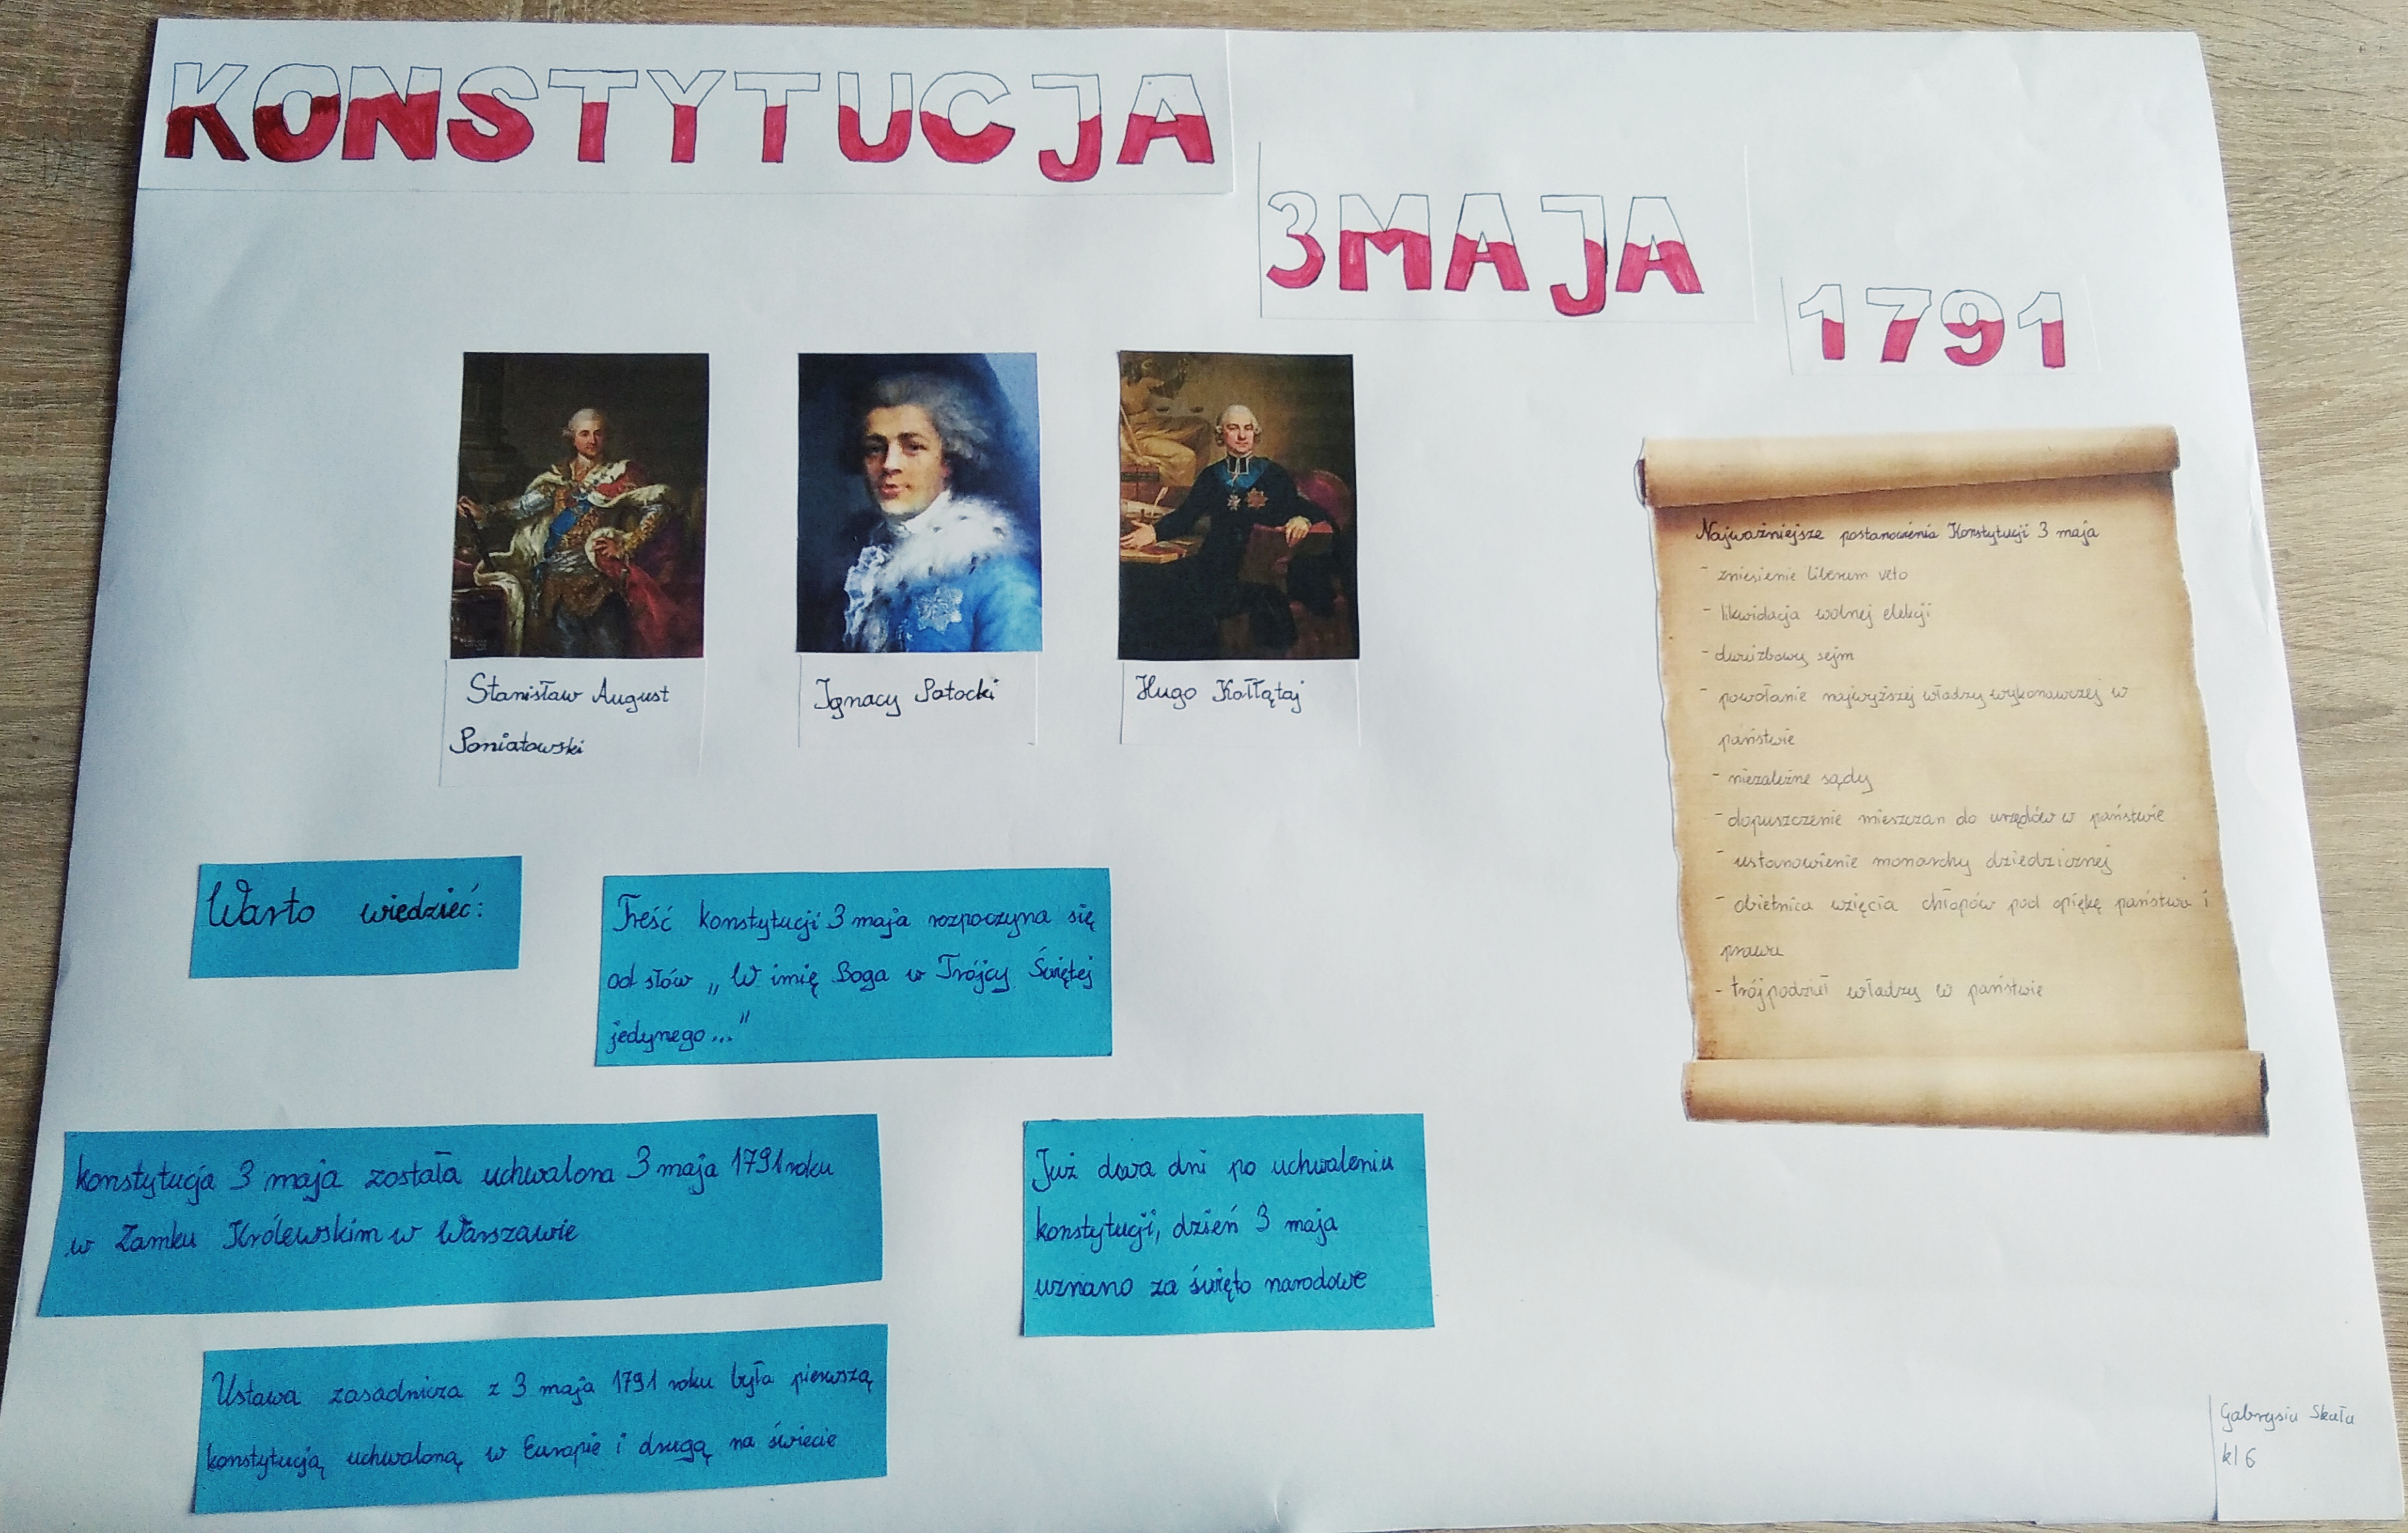 KONSTYTUCJA
3 MAJA
1791
Stanisław August
Poniatowski
Ignacy Potocki
Hugo Kołłątaj
Najważniejsze postanowienia Konstytucji 3 maja
- zniesienie liberum veto
- likwidacja wolnej elekcji
- dwuizbowy sejm
- powołanie najwyższej władzy wykonawczej w
państwie
- niezależne sądy
- dopuszczenie mieszczan do urzędów w państwie
- ustanowienie monarchy dziedzicznej
- obietnica wzięcia chłopów pod opiękę państwa i
prawa
- trójpodział władzy w państwie
Warto wiedzieć:
Treść konstytucji 3 maja rozpoczyna się
od słów „W imię Boga w Trójcy Świętej
jedynego..."
konstytucja 3 maja została uchwalona 3 maja 1791 roku
w Zamku Królewskim w Warszawie
Już dwa dni po uchwaleniu
konstytucji, dzień 3 maja
uznano za święto narodowe
Ustawa zasadnicza z 3 maja 1791 roku była pierwszą
konstytucją uchwaloną w Europie i drugą na świecie
Gabrysia Skała
kl 6